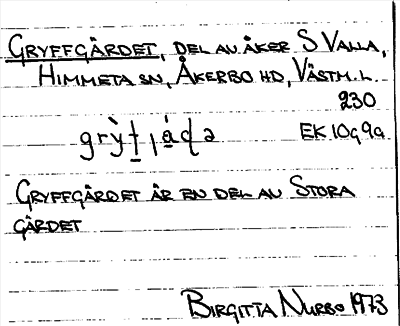 GRYFFGÄRDET, DEL AV ÅKER S VALLA,
HIMMETA SN, ÅKERBO HD, VÄSTM. L.
230
EK 10g9a
GRYFFGÄRDET ÄR EN DEL AV STORA
GÄRDET
BIRGITTA NURBO 1973